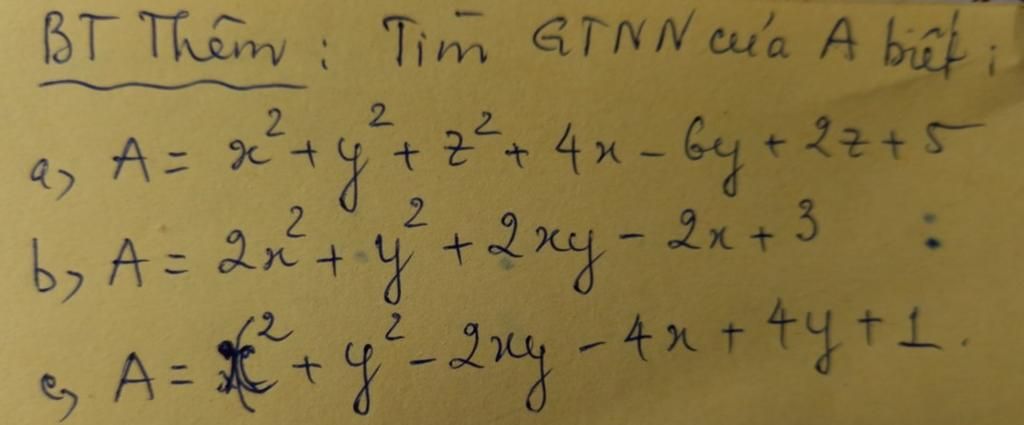 BT Thêm : Tìm GTNN của A biết :
a, A = x² + y² + z² + 4x - 6y + 2z + 5
b, A = 2x² + y² + 2xy - 2x + 3
c, A = x² + y² - 2xy - 4x + 4y + 1.